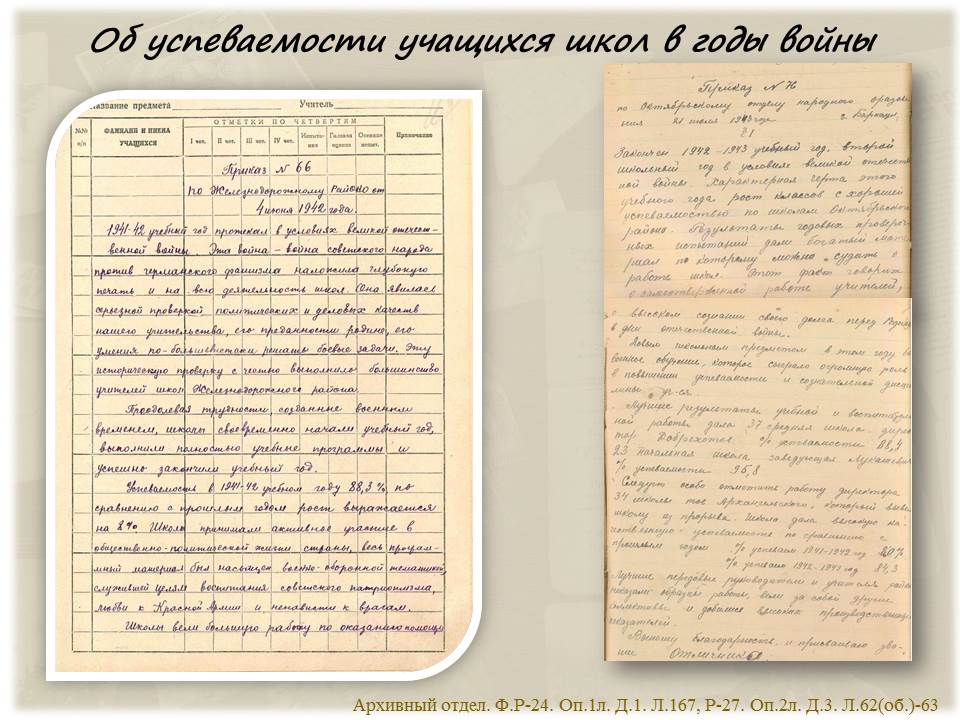 Об успеваемости учащихся школ в годы войны
Название предмета Учитель
№№ п/п ФАМИЛИЯ И ИМЕНА УЧАЩИХСЯ ОТМЕТКИ ПО ЧЕТВЕРТЯМ I чет. II чет. III чет. IV чет. Испыта-ния Годовая Осенние испыт. Примечание
Приказ № 66
по Железнодорожному РайОНО от
4 июня 1942 года.
1941-42 учебный год протекал в условиях великой отечест-
венной войны. Эта война - война советского народа
против германского фашизма наложила глубокую
печать и на всю деятельность школ. Она явилась
серьезной проверкой политических и деловых качеств
нашего учительства, его преданности родине, его
умения по-большевистски решать боевые задачи. Эту
историческую проверку с честью выполнило большинство
учителей школ Железнодорожного района.
Преодолевая трудности, созданные военным
временем, школы своевременно начали учебный год,
выполнили полностью учебные программы и
успешно закончили учебный год.
Успеваемость в 1941-42 учебном году 88,3% по
сравнению с прошлым годом рост выражается
на 8% Школы принимали активное участие в
общественно-политической жизни страны, весь програм-
мный материал был насыщен военно-оборонной тематикой,
служившей целям воспитания советского патриотизма,
любви к Красной Армии и ненависти к врагам.
Школы вели большую работу по оказанию помощи
Приказ № 76
по Октябрьскому отделу народного образова
ния 21 июля 1943 года г. Барнаул
§1
Закончен 1942-1943 учебный год, второй
школьный год в условиях великой отечествен
ной войны. Характерная черта этого
учебного года рост классов с хорошей
успеваемостью по школам Октябрьского
района. Результаты годовых провероч
ных испытаний дали богатый мате
риал по которому можно судить о
работе школ. Этот факт говорит
о самоотверженной работе учителей,
о высоком сознании своего долга перед Родиной
в дни отечественной войны.
Новым школьным предметом в этом году
военное обучение, которое сыграло огромную роль
в повышении успеваемости и сознательной дисци
плины уч-ся.
Лучшие результаты учебной и воспитатель
ной работы дала 37 средняя школа дирек
тор Доброхотов. % успеваемости 88,4
23 начальная школа заведующая Лукашевич
% успеваемости 95,8
Следует особо отметить работу директора
34 школы тов Архангельского, который вывел
школу из прорыва. Школа дала высокую ка
чественную успеваемость по сравнению с
прошлым годом % успеваем 1941-1942 год 80%
% успеваем 1942-1943 год 84,3
Лучшие передовые руководители и учителя района
показали образцы работы, вели за собой другие
коллективы и добились высоких производственных
показателей.
Выношу благодарность и присваиваю зва-
ние Отличника
Архивный отдел. Ф.Р-24. Оп.1л. Д.1. Л.167, Р-27. Оп.2л. Д.3. Л.62(об.)-63